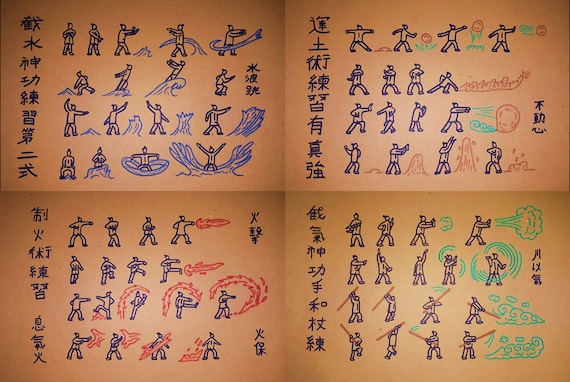 截水神功練習第二式
水波跳
運土術練習有真強
不動心
制火術練習 息氣火
火擊
火保
截氣神功手和杖練
川以氣